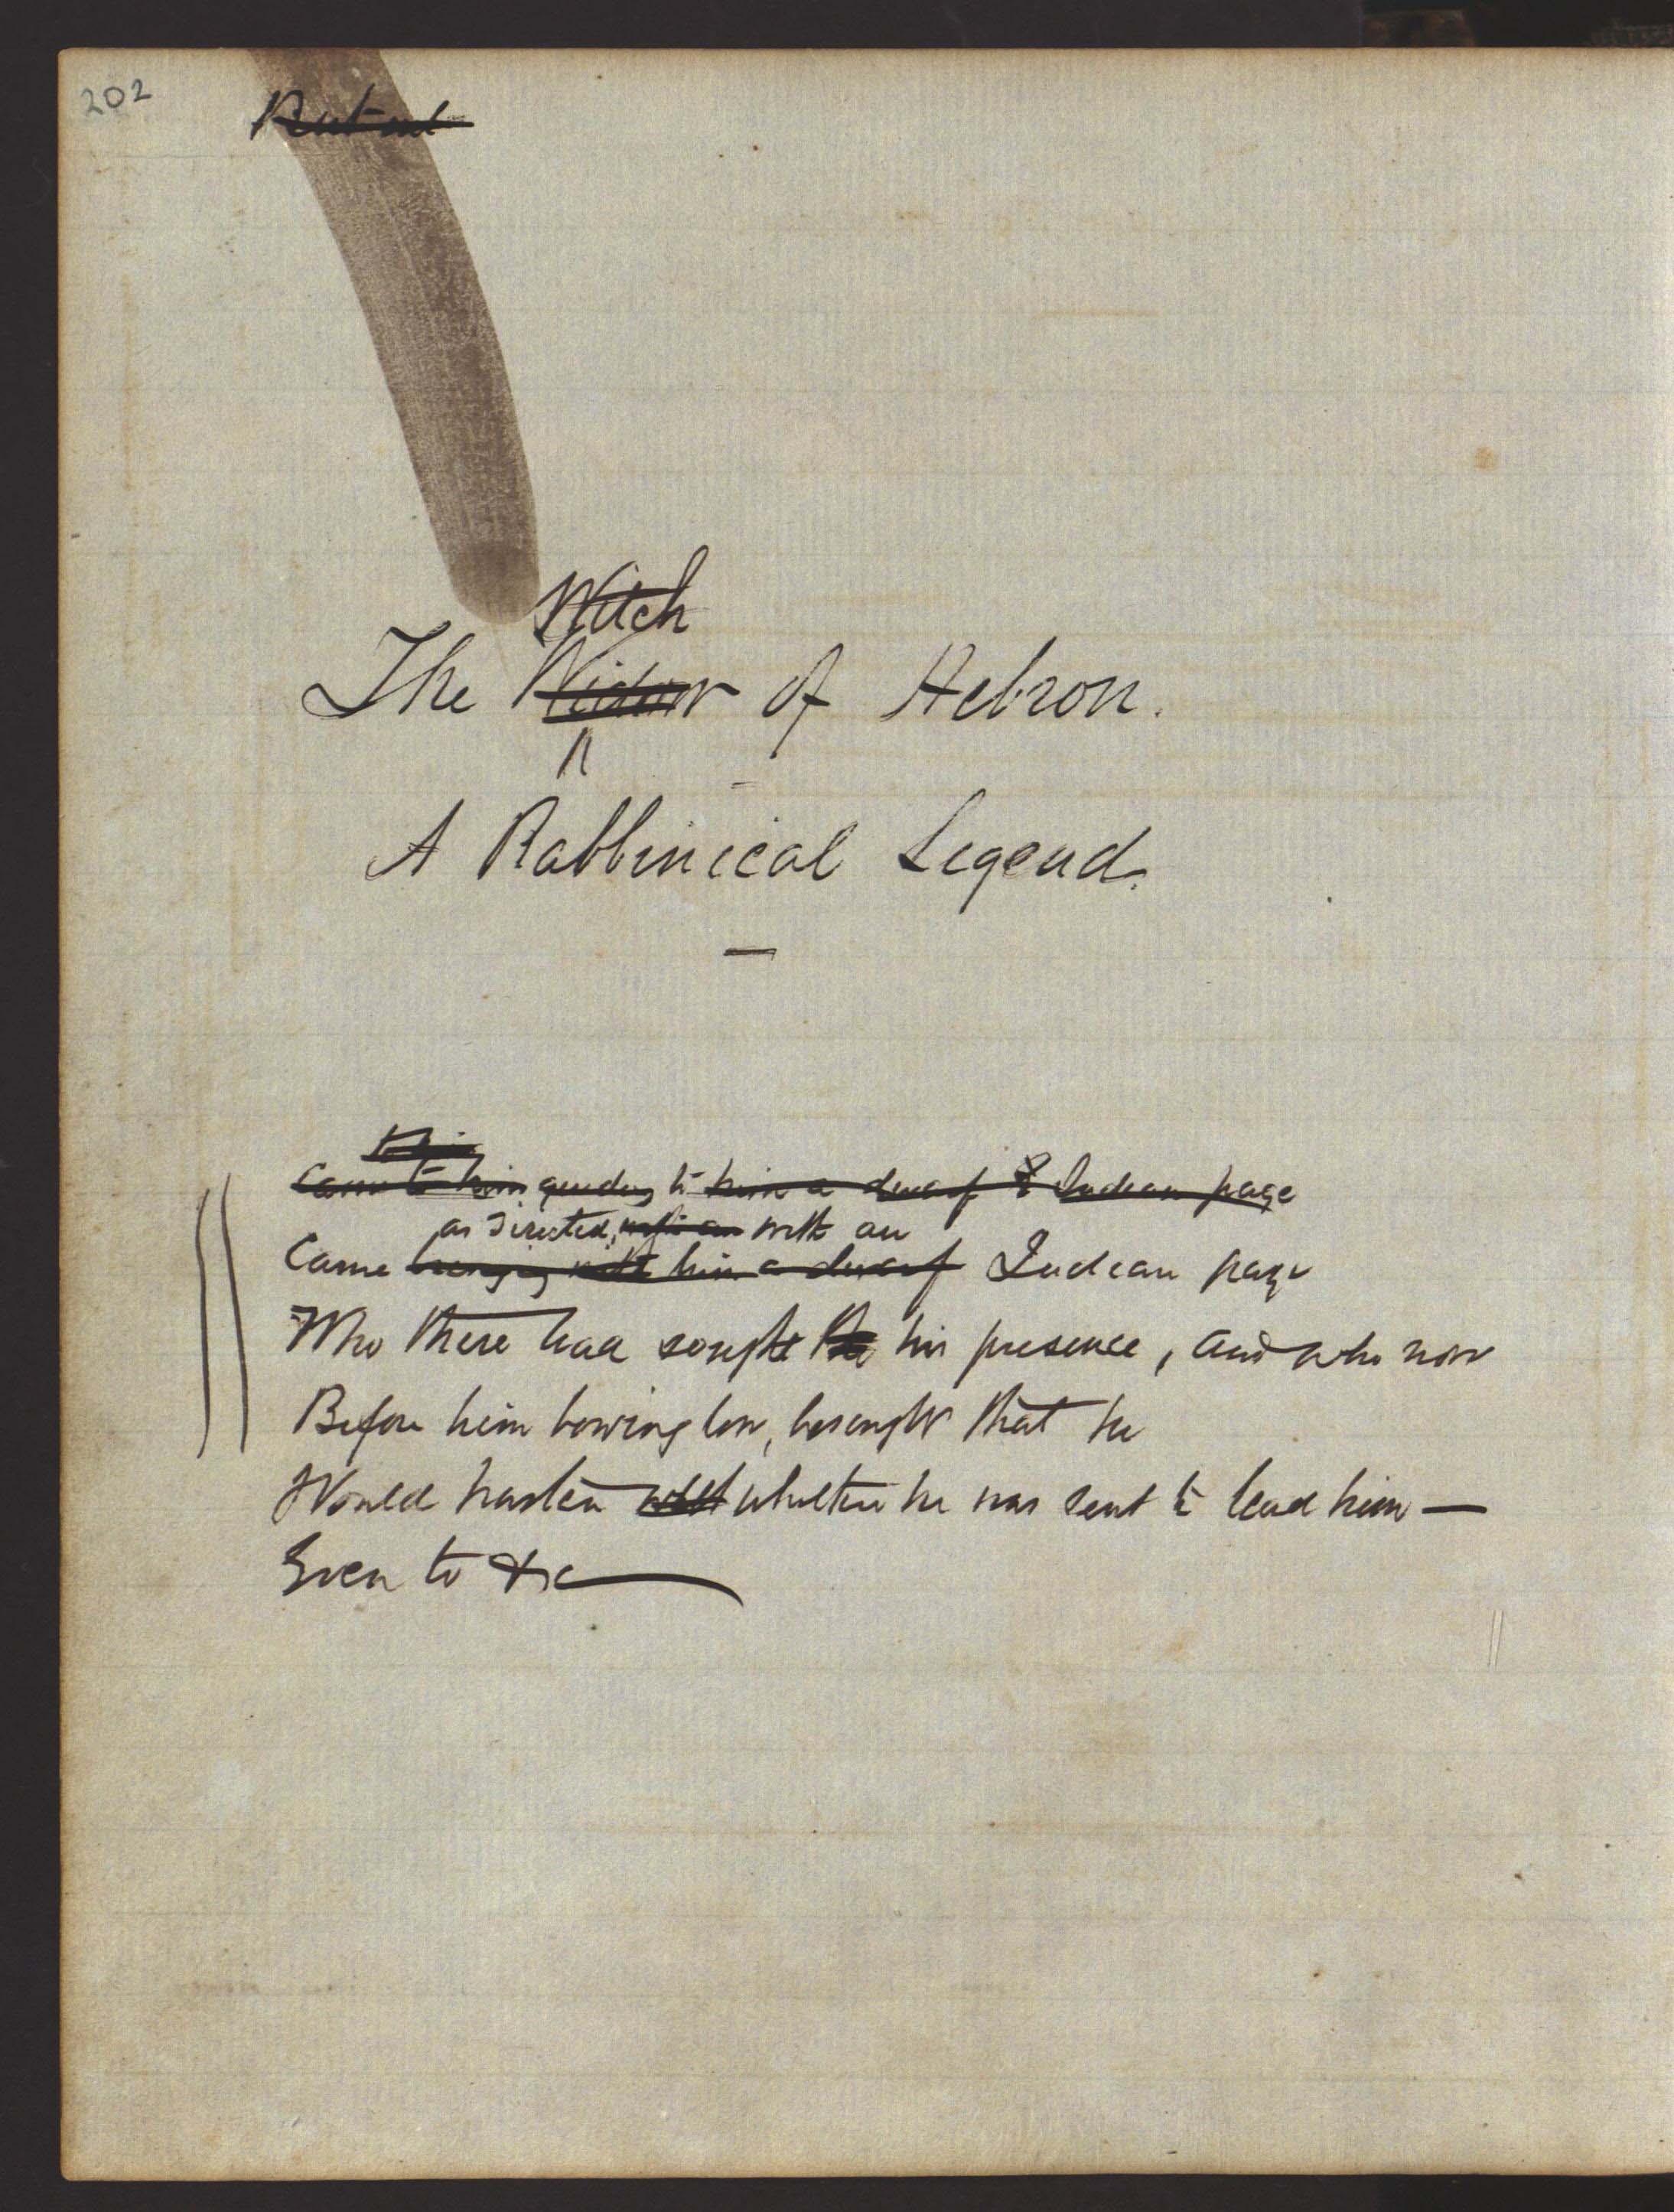 202
But
Witch
The Widow of Hebron.
A Rabbinical Legend.
Came to him guiding to him a dwarf & Indean page
as directed, with an with an
Came bringing with him a dwarf Indean page
Who there had sought the his presence, and who now
Before him bowing low, besought that he
Would hasten whither he was sent to lead him —
Even to &c